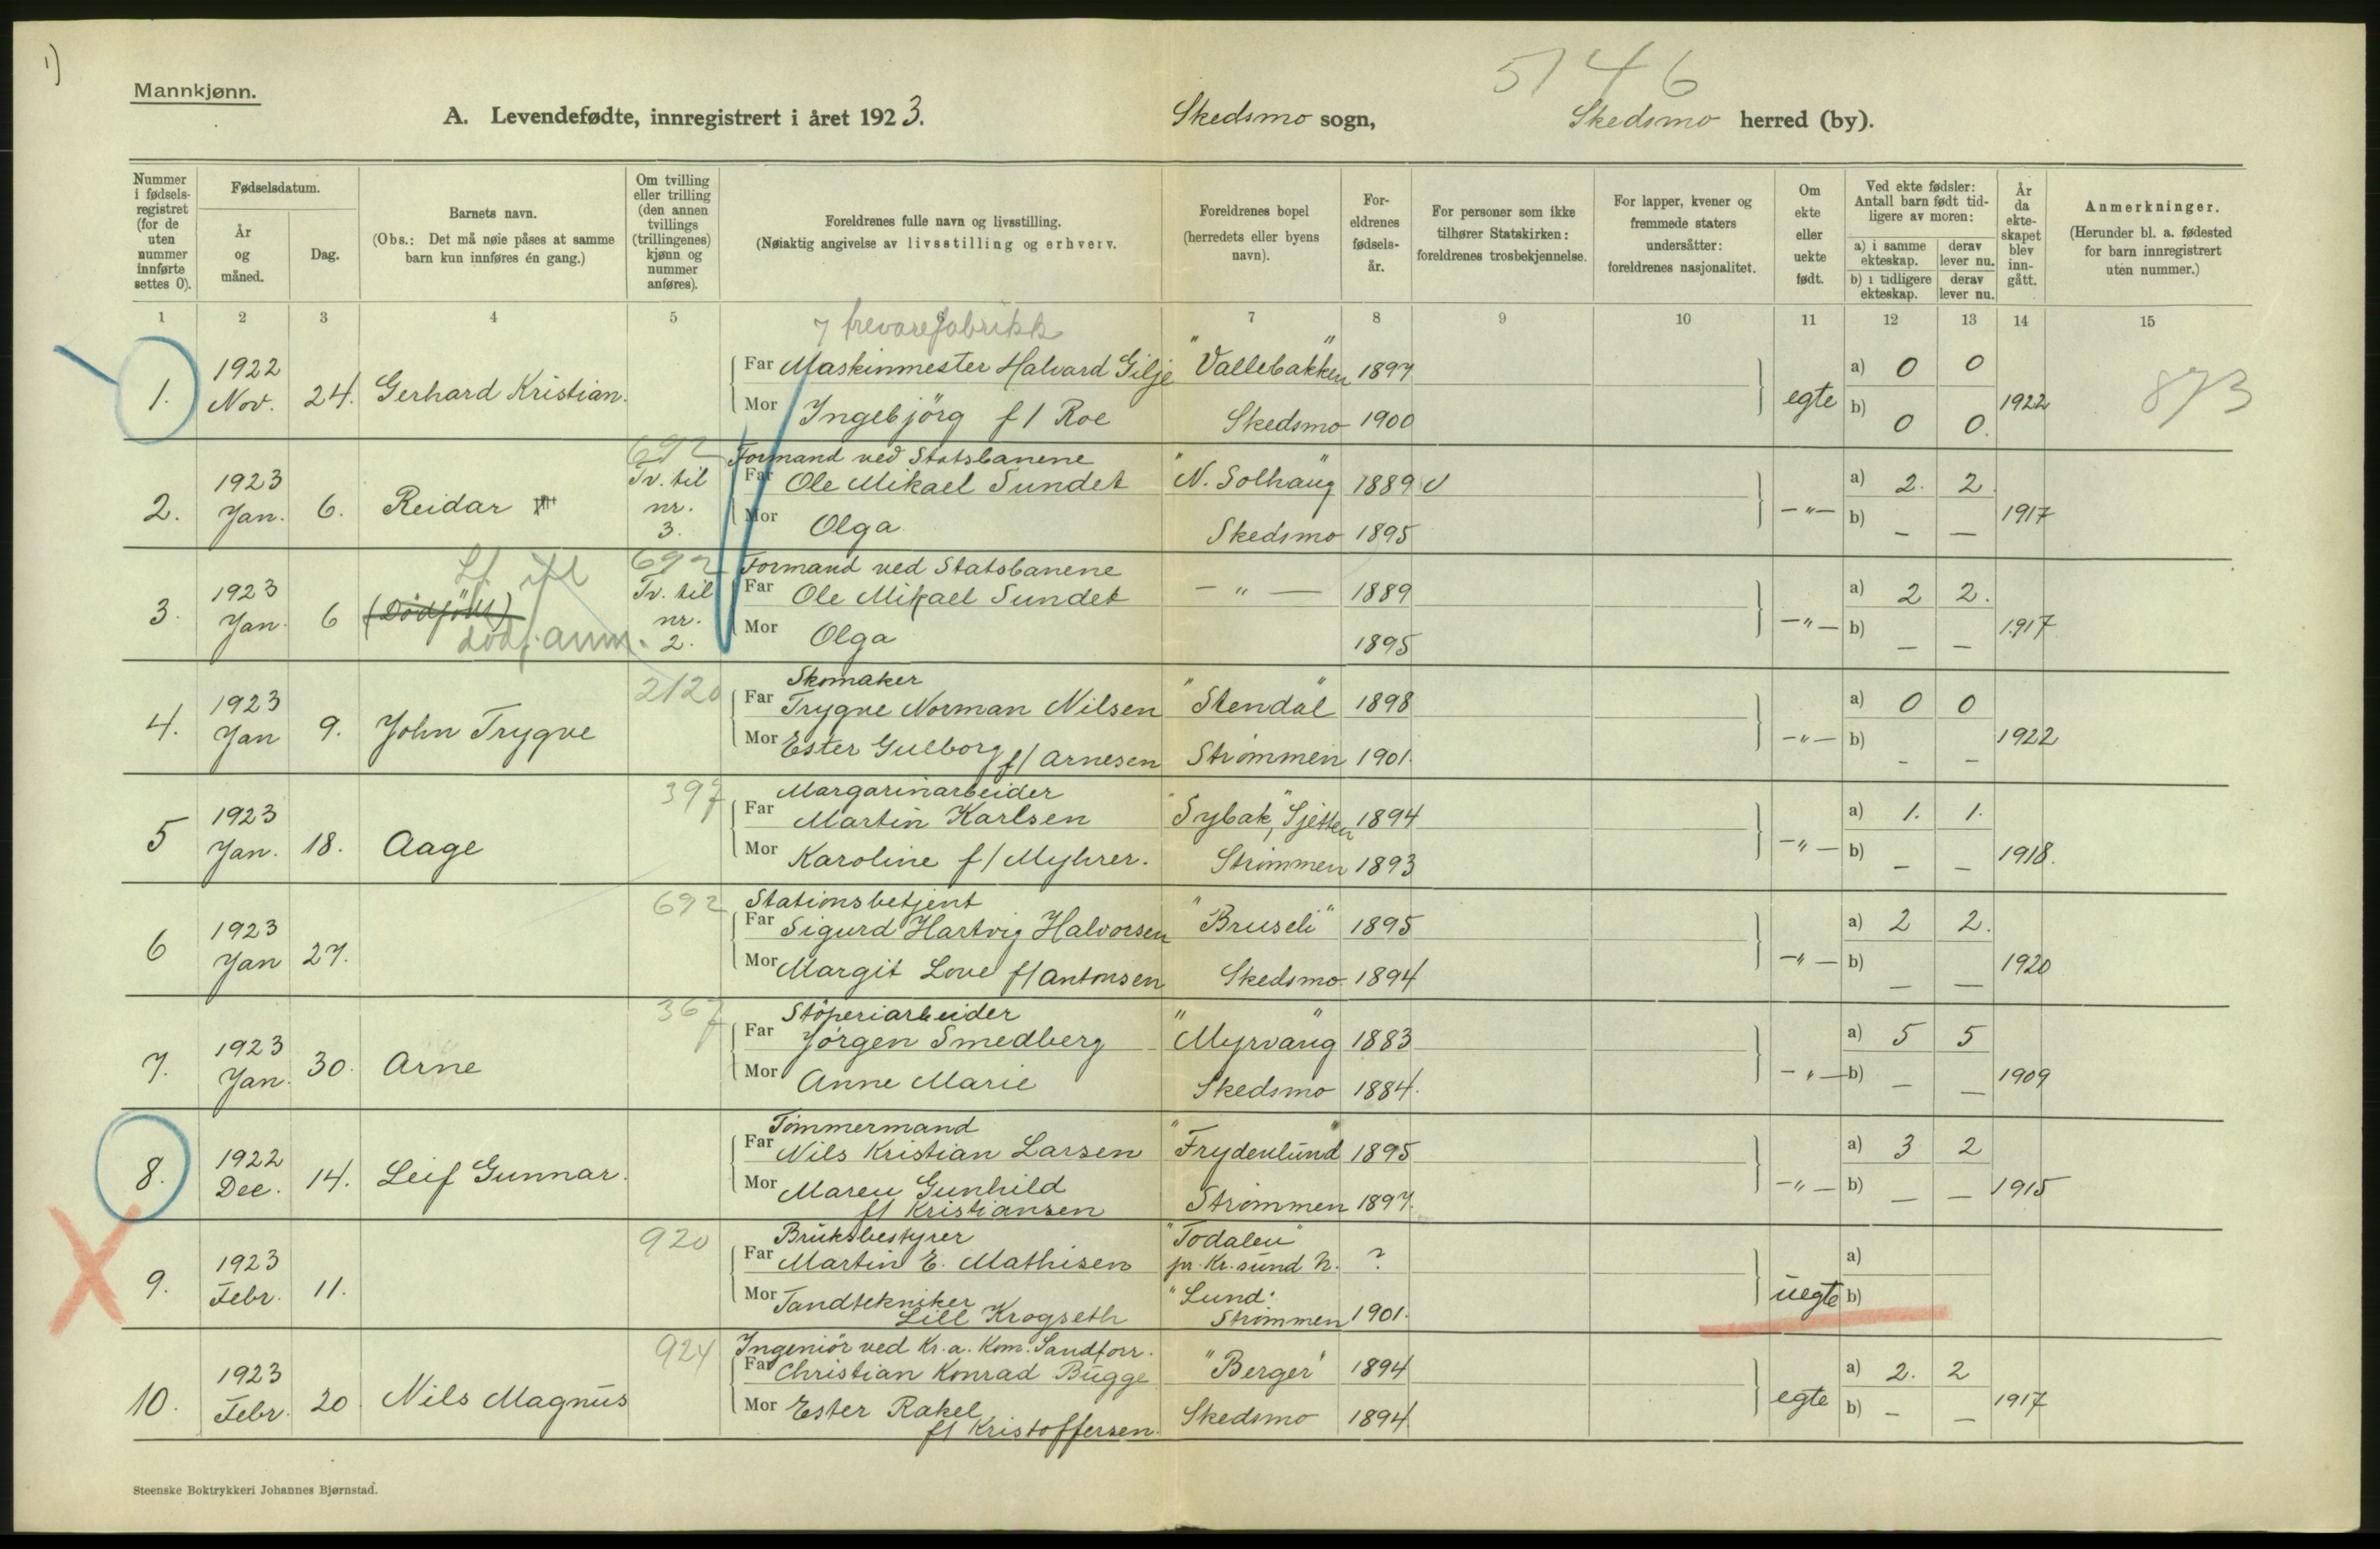 1)
5146
Mannkjønn.
A. Levendefødte, innregistrert i året 1923. Skedsmo sogn, Skedsmo herred (by).
Nummer i fødsels-registret (for de uten nummer innførte settes 0).
Fødselsdatum.
År og måned.
Dag.
Barnets navn.
(Obs.: Det må nøie påses at samme barn kun innføres én gang.)
Om tvilling eller trilling (den annen tvillings (trillingenes) kjønn og nummer anføres).
Foreldrenes fulle navn og livsstilling.
(Nøiaktig angivelse av livsstilling og erhverv.
Foreldrenes bopel (herredets eller byens navn).
For-eldrenes fødsels-år.
For personer som ikke tilhører Statskirken: foreldrenes trosbekjennelse.
For lapper, kvener og fremmede staters undersåtter: foreldrenes nasjonalitet.
Om ekte eller uekte født.
Ved ekte fødsler: Antall barn født tid-ligere av moren:
a) i samme ekteskap. derav lever nu.
b) i tidligere ekteskap. derav lever nu.
År da ekte-skapet blev inn-gått.
Anmerkninger.
(Herunder bl. a. fødested for barn innregistrert uten nummer.)
1 2 3 4 5 6 7 8 9 10 11 12 13 14 15
trevarefabrikk
1. 1922 Nov. 24. Gerhard Kristian.
Far Maskinmester Halvard Gilje "Vallebakken" 1897 a) 0 0
Mor Ingebjörg f/ Roe Skedsmo 1900 egte b) 0 0. 1922 873
692 Formand ved Statsbanene
2. 1923 Jan. 6. Reidar Tv. til nr. 3.
Far Ole Mikael Sundet "N. Solhaug" 1889 a) 2. 2.
Mor Olga Skedsmo 1895 -"- b) — — 1917
692 Formand ved Statsbanene
3. 1923 Jan. 6 (Dödfödt) Tv. til nr. 2.
dødf. anm.
Far Ole Mikael Sundet — " — 1889 a) 2 2.
Mor Olga 1895 -"- b) — — 1917
2120 Skomaker
4. 1923 Jan 9. John Trygve
Far Trygve Norman Nilsen "Stendal" 1898 a) 0 0
Mor Ester Gulborg f/ Arnesen Strömmen 1901. -"- b) - - 1922
397 Margarinarbeider
5 1923 Jan. 18. Aage
Far Martin Karlsen "Sybak", Sjetten 1894 a) 1. 1.
Mor Karoline f/ Myhrer. Strömmen 1893 -"- b) — — 1918.
692 Stationsbetjent
6 1923 Jan 27.
Far Sigurd Hartvig Halvorsen "Bruseli" 1895 a) 2 2.
Mor Margit Love f/ Antonsen Skedsmo 1894 -"- b) — — 1920
367 Stöperiarbeider
7. 1923 Jan. 30. Arne
Far Jörgen Smedberg "Myrvang" 1883 a) 5 5
Mor Anne Marie Skedsmo 1884. -"- b) — — 1909
Tömmermand
8. 1922 Dec. 14. Leif Gunnar.
Far Nils Kristian Larsen "Frydenlund" 1895 a) 3 2
Mor Maren Gunhild f/ Kristiansen Strömmen 1897. -"- b) — — 1915
920 Bruksbestyrer
9. 1923 Febr. 11.
Far Martin E. Mathisen "Todalen" pr. Kr.sund N. ? a)
Mor Tandtekniker Lill Krogseth "Lund" Strömmen 1901. uegte b)
924 Ingeniör ved Kr.a. Kom. Sandforr.
10. 1923 Febr. 20 Nils Magnus
Far Christian Konrad Bugge "Berger" 1894 a) 2. 2
Mor Ester Rakel f/ Kristoffersen. Skedsmo 1894 egte b) — — 1917
Steenske Boktrykkeri Johannes Bjørnstad.